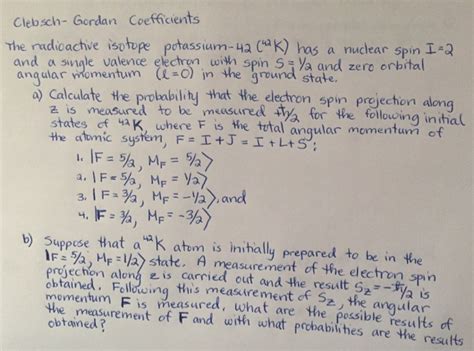 Clebsch-Gordan Coefficients
The radioactive isotope potassium-42 (⁴²K) has a nuclear spin I=2
and a single valence electron with spin S=1/2 and zero orbital
angular momentum (l=0) in the ground state.
a) Calculate the probability that the electron spin projection along
z is measured to be measured +ħ/2 for the following initial
states of ⁴²K, where F is the total angular momentum of
the atomic system, F = I+J = I+L+S:
1. |F = 5/2, M_F = 5/2⟩
2. |F = 5/2, M_F = 1/2⟩
3. |F = 3/2, M_F = -1/2⟩, and
4. |F = 3/2, M_F = -3/2⟩
b) Suppose that a ⁴²K atom is initially prepared to be in the
|F = 5/2, M_F = 1/2⟩ state. A measurement of the electron spin
projection along z is carried out and the result S_z = -ħ/2 is
obtained. Following this measurement of S_z, the angular
momentum F is measured, what are the possible results of
the measurement of F and with what probabilities are the results
obtained?